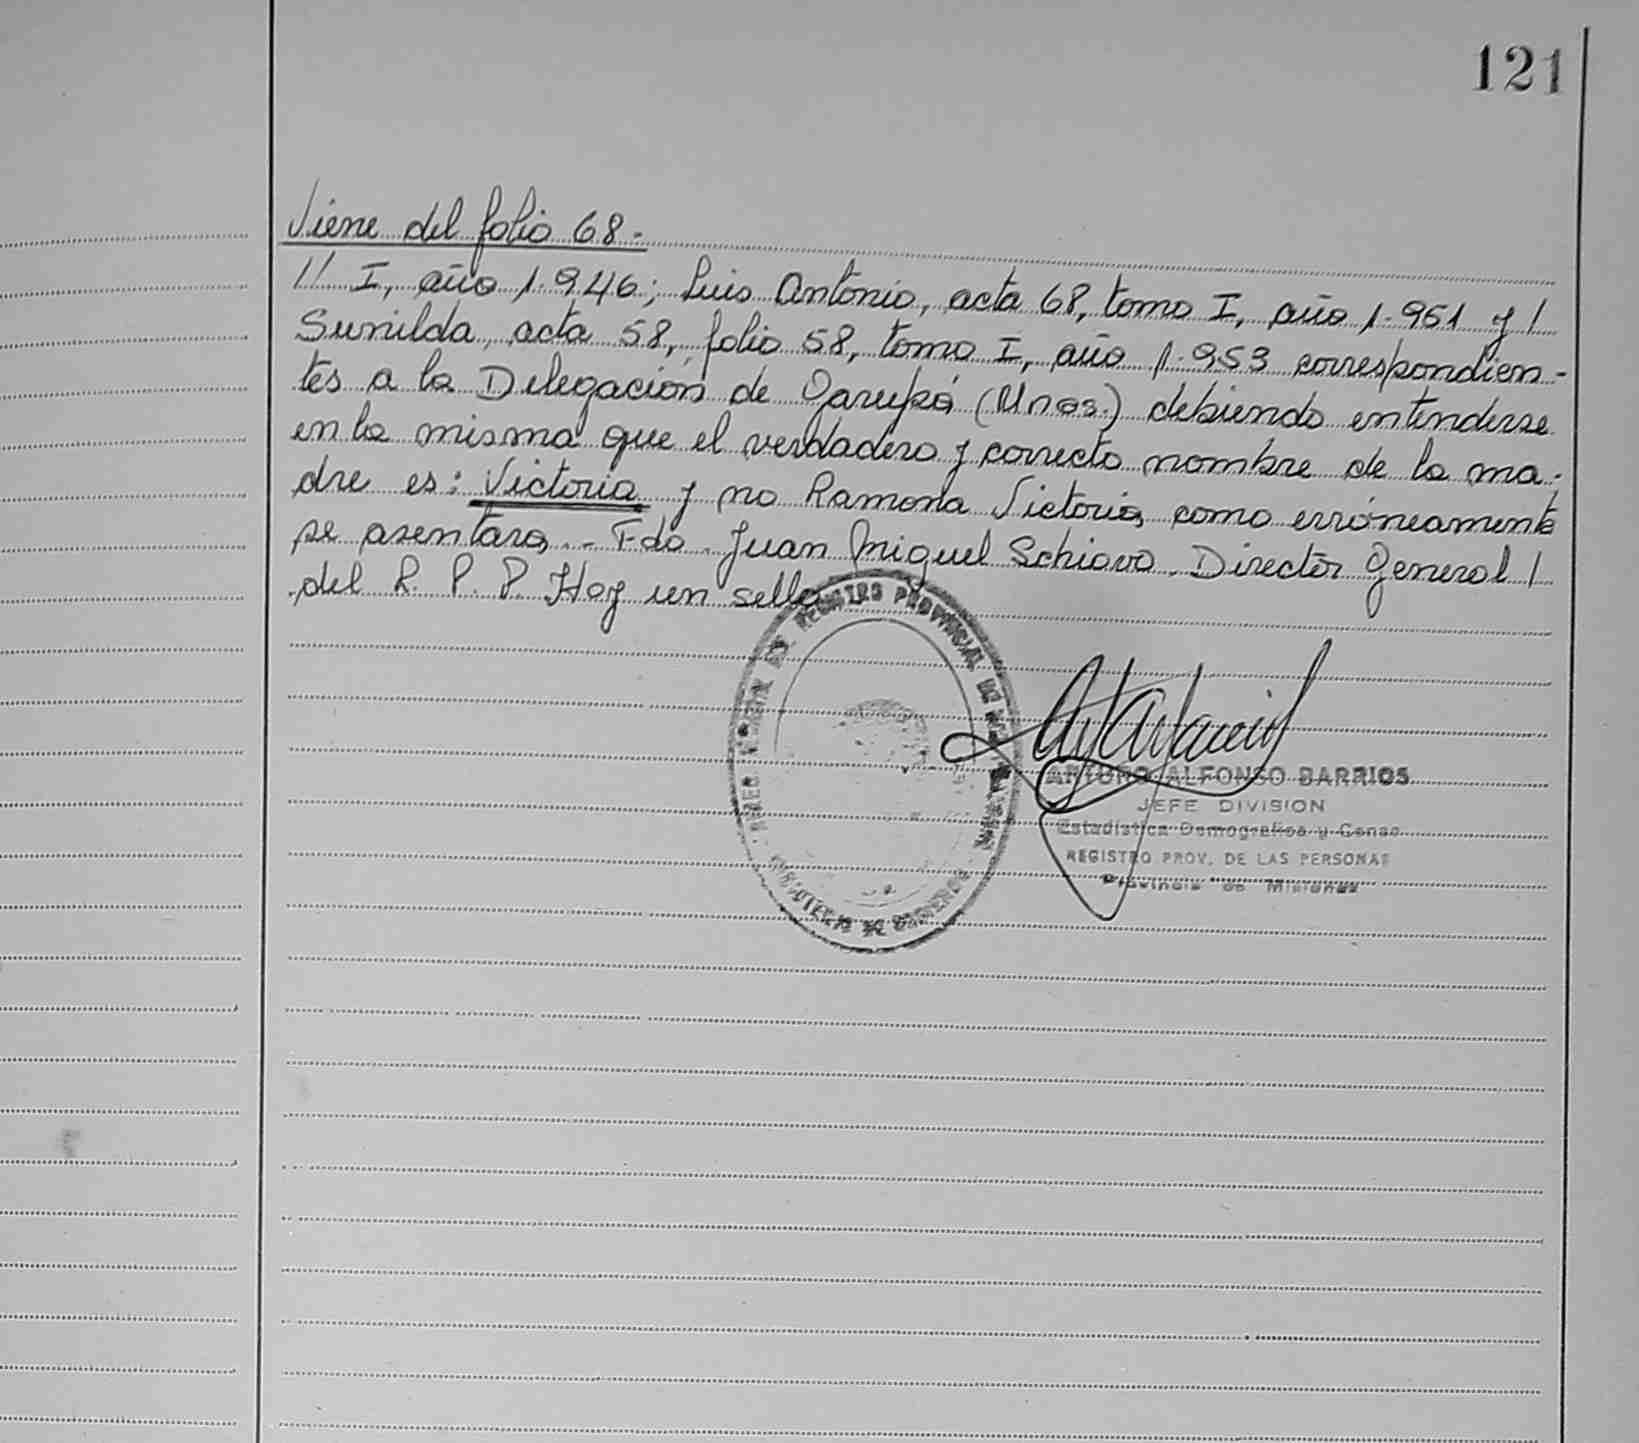 121
Viene del folio 68.-
// I, año 1.946; Luis Antonio, acta 68, tomo I, año 1.951 y /
Sunilda, acta 58, folio 58, tomo I, año 1.953 correspondien-
tes a la Delegación de Garupá (Mnes.) debiendo entenderse
en la misma que el verdadero y correcto nombre de la ma-
dre es: Victoria y no Ramona Victoria, como erróneamente
se asentara.- Fdo. Juan Miguel Schiavo. Director General /
del R. P. P. Hay un sello
REGISTRO PROVINCIAL DE
ARTURO ALFONSO BARRIOS
JEFE DIVISION
Estadística Demografica y Censo
REGISTRO PROV. DE LAS PERSONAS
Provincia de Misiones